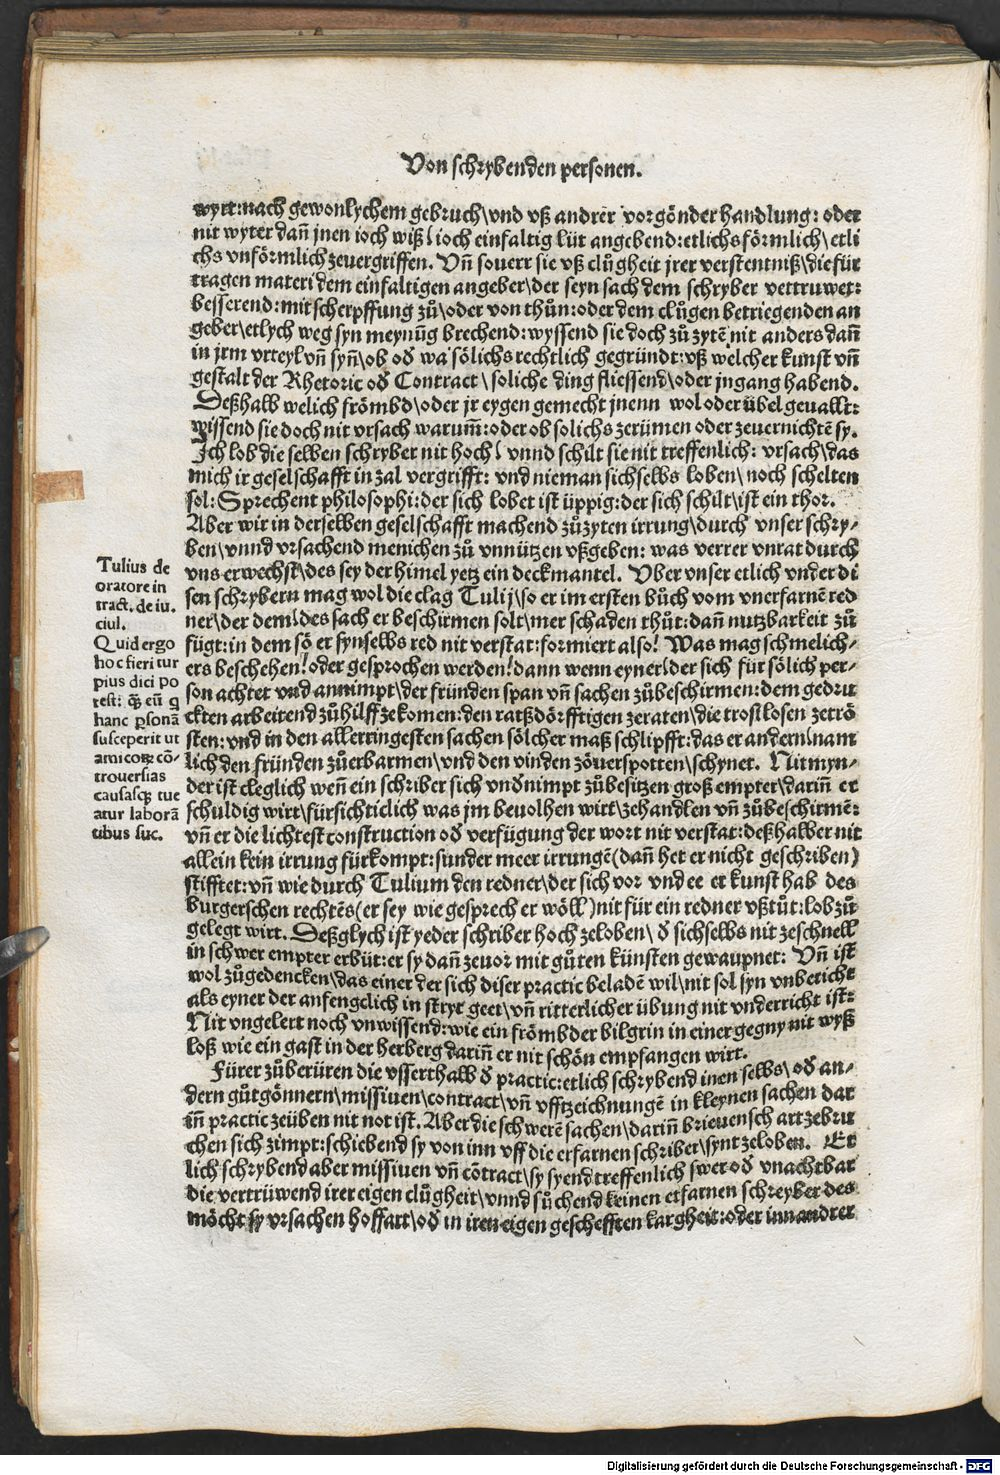 Von schrybenden personen.
wyrt: nach gewonlychem gebruch\vnd vß andrer vorgönder handlung: oder
nit wyter dañ jnen ioch wiß/ ioch einfaltig lüt angebend: etlichs förmlich\etli
chs vnförmlich zeuergriffen. Vñ souerr sie vß clůgheit jrer verstentniß\die für
tragen materi dem einfaltigen angeber\der seyn sach dem schryber vertruwet:
besserend: mit scherpffung zů\oder von thůn: oder dem clůgen betriegenden an
geber\etlych weg syn meynũg brechend: wyssend sie doch zů zytẽ nit anders dañ
in jrm vrteyl vñ syñ\ob oď wa sölichs rechtlich gegründt: vß welcher kunst vñ
gestalt der Rhetoric oď Contract\soliche ding fliessend\oder jngang habend.
Deßhalb welich frömbd\oder jr eygen gemecht jnenn wol oder übel geuallt:
wissend sie doch nit vrsach warum̃: oder ob solichs zerümen oder zeuernichtẽ sy.
Ich lob die selben schryber nit hoch/ vnnd schilt sie nit treffenlich: vrsach\das
mich ir geselschafft in zal vergrifft: vnd nieman sichselbs loben\noch schelten
sol: Sprechent philosophi: der sich lobet ist üppig: der sich schilt\ist ein thor.
Aber wir in derselben geselschafft machend zůzyten irrung\durch vnser schry-
ben\vnnd vrsachend menschen zů vnnützen vßgeben: was verrer vnrat durch
vns erwechst\des sey der himel yetz ein deckmantel. Vber vnser etlich vnder di
sen schrybern mag wol die clag Tulij\so er im ersten bůch vom vnerfarnẽ red
ner\der dem/des sach er beschirmen solt\mer schaden thůt: dañ nutzbarkeit zů
fügt: in dem sö er synselbs red nit verstat: formiert also! Was mag schmelich-
ers beschehen! oder gesprochen werden! dann wenn eyner/der sich für sölich per-
son achtet vnd annimpt\der fründen span vñ sachen zůbeschirmen: dem gedru
ckten arbeitend zůhilff zekomen: den ratßdörfftigen zeraten\die trostlosen zetrö
sten: vnd in den allerringesten sachen sölcher maß schlipfft: das er andern/nam
lich den fründen zůerbarmen\vnd den vinden zöuerspotten\schynet. Nit myn-
der ist cleglich weñ ein schriber sich vnďnimpt zůbesitzen groß empter\dariñ er
schuldig wirt\fürsichticlich was jm beuolhen wirt\zehandlen vñ zůbeschirmẽ:
vñ er die lichtest construction oď verfügung der wort nit verstat: deßhalb er nit
allein kein irrung fürkompt: sunder meer irrungẽ (dañ het er nicht geschriben)
stifftet: vñ wie durch Tulium den redner\der sich vor vnd ee er kunst hab des
burgerschen rechtẽs (er sey wie gesprech er wöll) nit für ein redner vßtůt: lob zů
gelegt wirt. Deßglych ist yeder schriber hoch zeloben\ď sichselbs nit zeschnell
in schwer empter erbüt: er sy dañ zeuor mit gůten künsten gewaupnet: Vñ ist
wol zůgedencken\das einer der sich diser practic beladẽ wil\nit sol syn vnbericht
als eyner der anfengclich in stryt geet\vñ ritterlicher übung nit vnderricht ist:
Nit vngelert noch vnwissend: wie ein frömbder bilgrin in einer gegny nit wyß
loß wie ein gast in der herberg dariñ er nit schön empfangen wirt.
Fürer zůberüren die vsserthalb ď practic: etlich schrybend inen selbs\oď an-
dern gůtgönnern\missiuen\contract\vñ vffzeichnungẽ in kleynen sachen dar
iñ practic zeüben nit not ist. Aber die schwerẽ sachen\dariñ brieuensch art zebru
chen sich zimpt: schiebend sy von inn vff die erfarnen schriber\synt zeloben. Et
lich schrybend aber missiuen vñ cõtract\sy syend treffenlich swer oď vnachtbar
die vertrüwend irer eigen clůgheit\vnnd sůchend keinen erfarnen schreyber des
möcht sy vrsachen hoffart\oď in iren eigen geschefften kargheit: oder inn andrer
Tulius de
oratore in
tract. de iu.
ciuil.
Quid ergo
hoc fieri tur
pius dici po
test: qȝ eũ q
hanc psonã
susceperit ut
amicoꝝ cõ-
trouersias
causasqȝ tue
atur laborã
tibus suc.
Digitalisierung gefördert durch die Deutsche Forschungsgemeinschaft - DFG